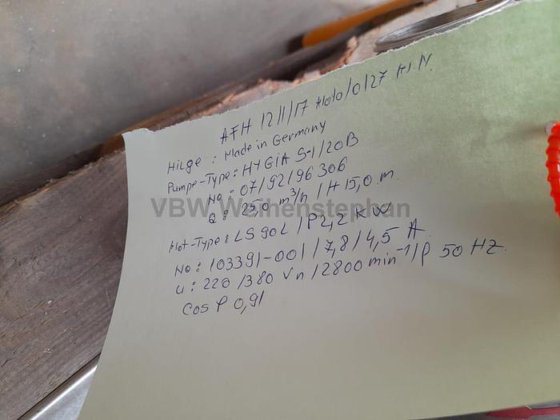 AFH 12/1/17 Mo10/0/27 KIN
Hilge: Made in Germany
Pumpe-Type: HYGIA S-1/20B
No: 07/92/96306
Q: 25,0 m³/h / H 15,0 m
VBW Weihenstephan
Mot-Type: LS 90L / P 2,2 KW
No: 103391-001 / 7,8/4,5 A
U: 220/380 Vn / 2800 min⁻¹ / f 50 HZ
Cos P 0,91